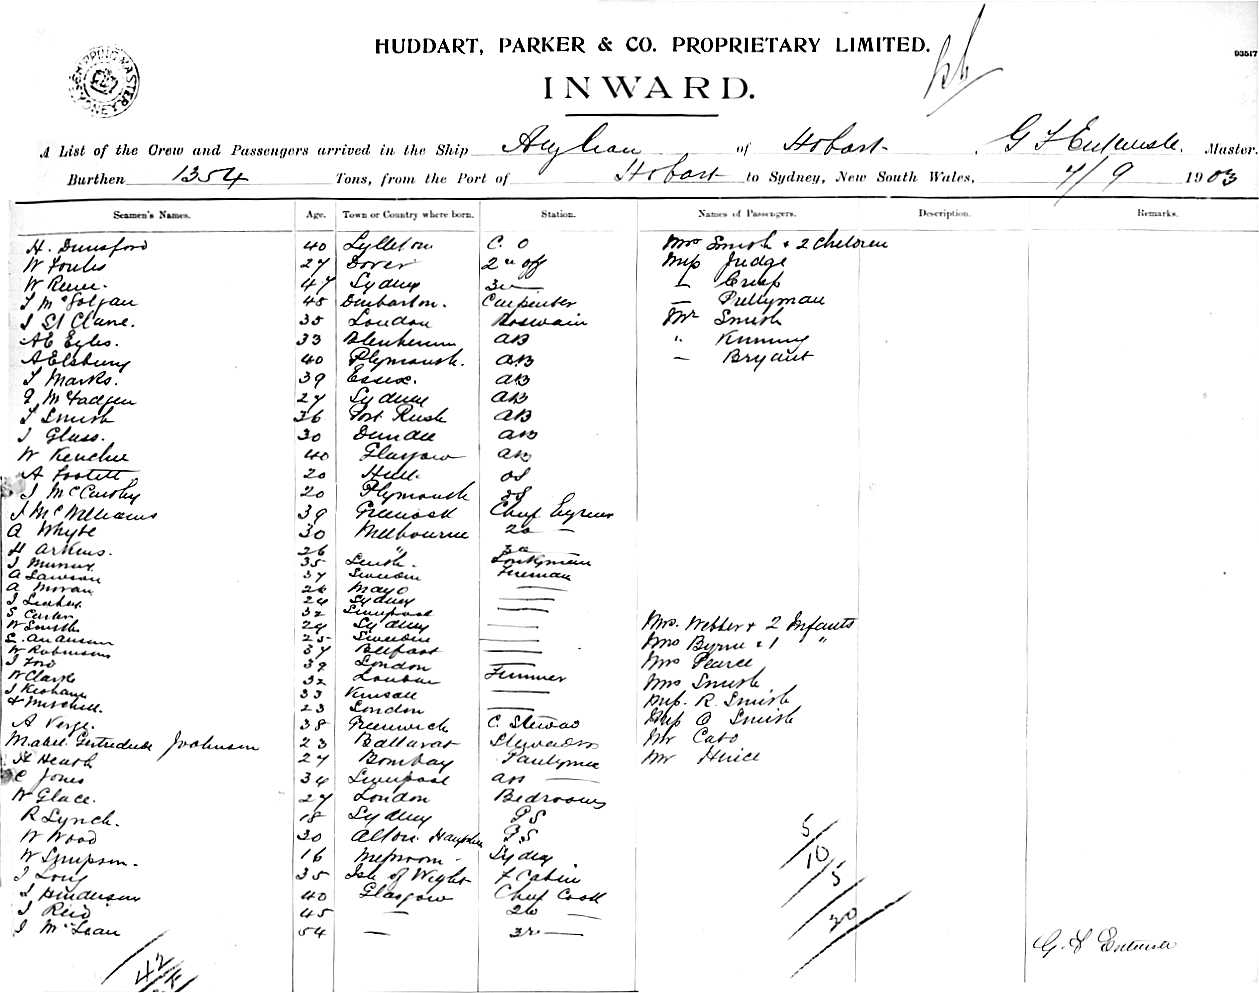 HUDDART, PARKER & CO. PROPRIETARY LIMITED.
93517
INWARD.
SHIPPING MASTER SYDNEY
A List of the Crew and Passengers arrived in the Ship Anglian of Hobart G F Entwisle, Master.
Burthen 1354 Tons, from the Port of Hobart to Sydney, New South Wales, 7/9 1903
Seamen's Names. Age. Town or Country where born. Station. Names of Passengers. Description. Remarks.
H. Dunsford 40 Lyttleton C. O Mrs Smith & 2 Children
W 27 Dover 2nd off Miss Judge
W 47 Sydney 3rd — " Crisp
45 Dunbarton. Carpenter — Prettyman
J St Clare. 35 London Boswain Mr Smith
A E Eyles. 33 Blenheim AB "
A Elsbury 40 Plymouth. AB — Bryant
T Marks. 39 Essex. AB
McFadyen 27 Sydney AB
T Smith 36 Port Rush AB
J Glass. 30 Dundee AB
W 40 Glasgow AB
A 20 Hull. OS
J McCarthy 20 Plymouth OS
J McWilliams 39 Greenock Chief
A Whyte 30 Melbourne 2nd —
H 26 " 3rd —
J Murray 35 Leith.
A Lawson 37 Sweden Fireman
A Moran 26 Mayo —
J 24 Sydney —
S Carter 32 Liverpool —
W Smith 24 Sydney — Mrs. Webber & 2 Infants
Anderson 25 Sweden — Mrs Byrne & 1 "
W Robinson 37 Belfast — Mrs Pearce
J Ford 39 London —
W Clark 32 London Trimmer Mrs Smith
J 33 Kinsale — Miss. R. Smith
H Mitchell. 23 London — Miss O Smith
A Verge. 38 Greenwich C. Steward Mr Cato
Mabel Gertrude Johnson 23 Ballarat Stewardess Mr
H Heath 27 Bombay Pantryman
C Jones 34 Liverpool ass —
W Glace. 27 London Bedrooms
R Lynch. 18 Sydney P S
W Wood 30 Alton P. S
W Simpson. 16 Messroom Sydney
J Long 35 Isle of Wight F Cabin
J Henderson 40 Glasgow Chief Cook
J Reid 45 — 2nd —
J McLean 54 — 3rd —
5
10
5
20
42
G. F Entwisle